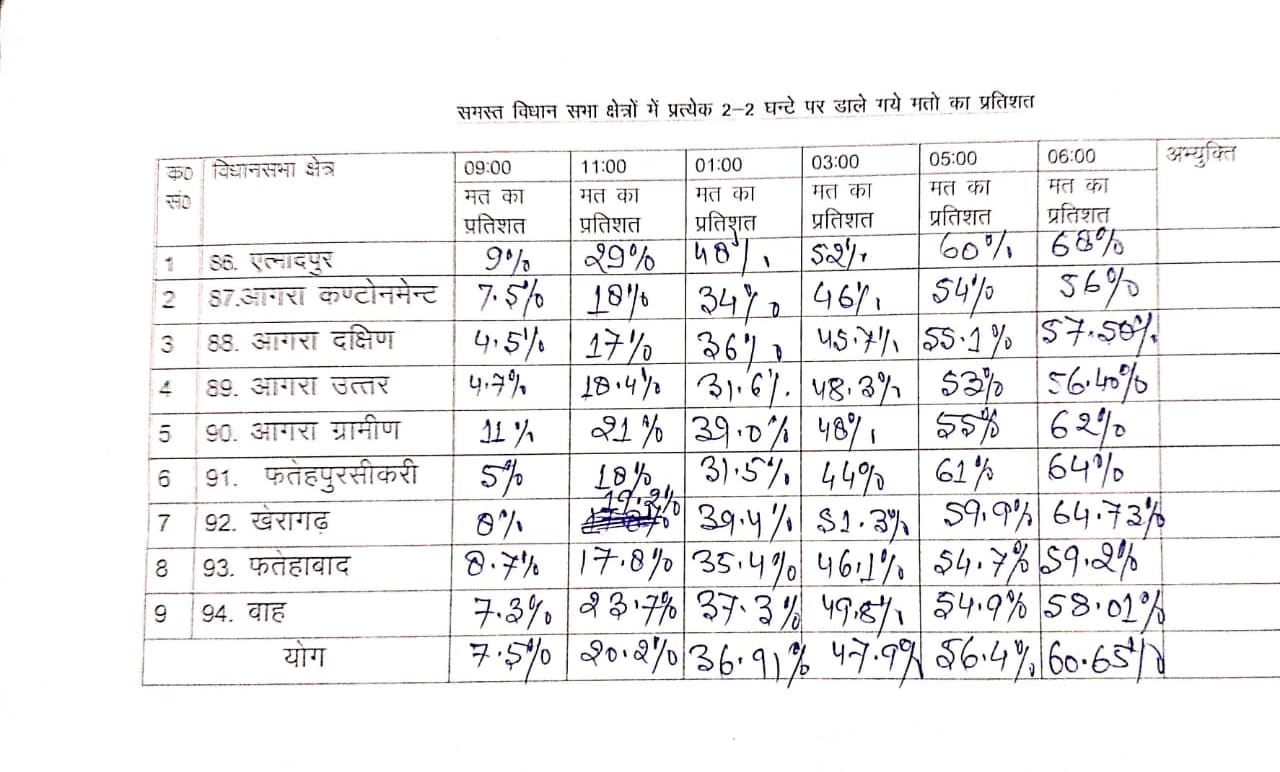 समस्त विधान सभा क्षेत्रों में प्रत्येक 2–2 घन्टे पर डाले गये मतो का प्रतिशत
क0 सं0 विधानसभा क्षेत्र 09:00 11:00 01:00 03:00 05:00 06:00 अभ्युक्ति
मत का प्रतिशत मत का प्रतिशत मत का प्रतिशत मत का प्रतिशत मत का प्रतिशत मत का प्रतिशत
1 86. एत्मादपुर 9% 29% 48% 52% 60% 68%
2 87.आगरा कण्टोनमेन्ट 7.5% 18% 34% 46% 54% 56%
3 88. आगरा दक्षिण 4.5% 17% 36% 45.7% 55.1% 57.50%
4 89. आगरा उत्तर 4.7% 18.4% 31.6% 48.3% 53% 56.40%
5 90. आगरा ग्रामीण 11% 21% 39.0% 48% 55% 62%
6 91. फतेहपुरसीकरी 5% 18% 31.5% 44% 61% 64%
7 92. खेरागढ़ 8% 19.2% 39.4% 51.3% 59.9% 64.73%
8 93. फतेहाबाद 8.7% 17.8% 35.4% 46.1% 54.7% 59.2%
9 94. वाह 7.3% 23.7% 37.3% 49.8% 54.9% 58.01%
योग 7.5% 20.2% 36.91% 47.9% 56.4% 60.65%